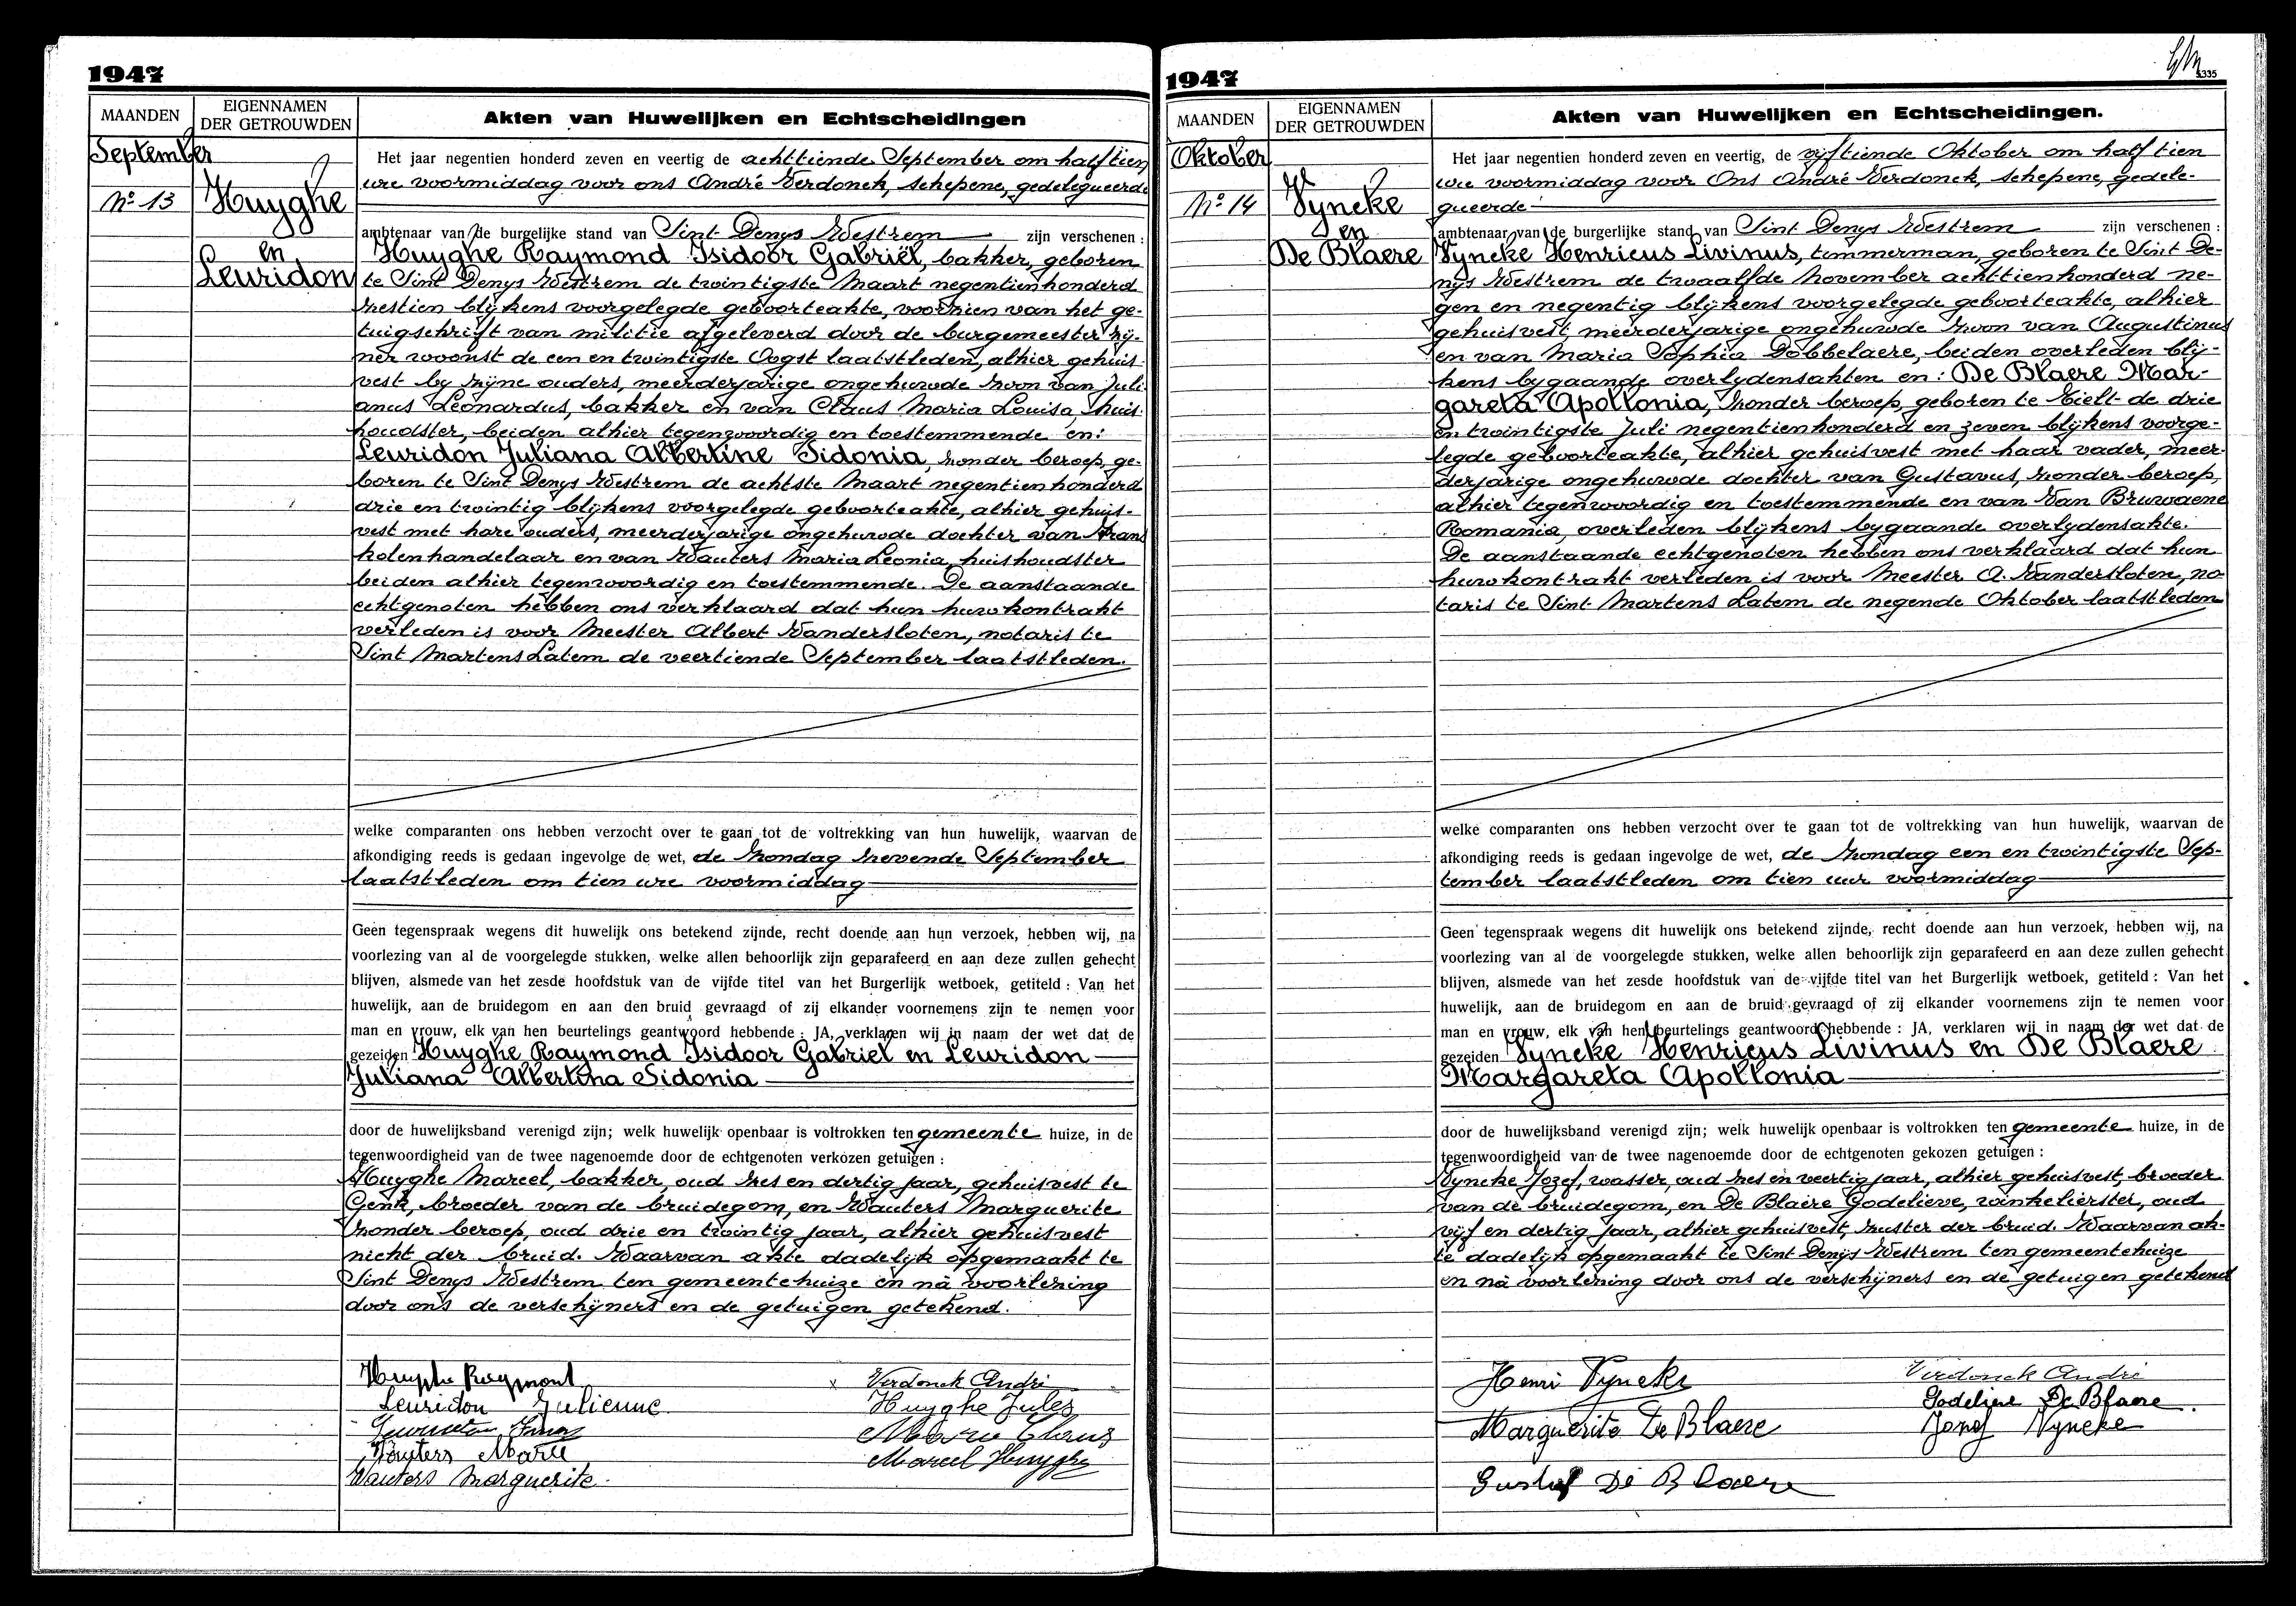 1947
MAANDEN
EIGENNAMEN
DER GETROUWDEN
Akten van Huwelijken en Echtscheidingen
September
No 13
Huyghe
en
Leuridon
Het jaar negentien honderd zeven en veertig de achttiende September om half tien
ure voormiddag voor ons André Verdonck, schepene, gedelegueerde
ambtenaar van de burgelijke stand van Sint Denys Westrem zijn verschenen :
Huyghe Raymond Isidoor Gabriël, bakker, geboren
te Sint Denys Westrem de twintigste Maart negentienhonderd
zestien blijkens voorgelegde geboorteakte, voorzien van het ge-
tuigschrift van militie afgeleverd door de burgemeester zij-
ner woonst de een en twintigste Oogst laatstleden, alhier gehuis-
vest by zijne ouders, meerderjarige ongehuwde zoon van Juli-
anus Leonardus, bakker en van Claus Maria Louisa, huis-
houdster, beiden alhier tegenwoordig en toestemmende en:
Leuridon Juliana Albertine Sidonia, zonder beroep, ge-
boren te Sint Denys Westrem de achtste Maart negentienhonderd
drie en twintig blijkens voorgelegde geboorteakte, alhier gehuis-
vest met hare ouders, meerderjarige ongehuwde dochter van Frans
kolenhandelaar en van Wauters Maria Leonia, huishoudster
beiden alhier tegenwoordig en toestemmende. De aanstaande
echtgenoten hebben ons verklaard dat hun huwkontrakt
verleden is voor Meester Albert Vandersloten, notaris te
Sint Martens Latem de veertiende September laatstleden.
welke comparanten ons hebben verzocht over te gaan tot de voltrekking van hun huwelijk, waarvan de
afkondiging reeds is gedaan ingevolge de wet, de Zondag zevende September
laatstleden om tien ure voormiddag
Geen tegenspraak wegens dit huwelijk ons betekend zijnde, recht doende aan hun verzoek, hebben wij, na
voorlezing van al de voorgelegde stukken, welke allen behoorlijk zijn geparafeerd en aan deze zullen gehecht
blijven, alsmede van het zesde hoofdstuk van de vijfde titel van het Burgerlijk wetboek, getiteld : Van het
huwelijk, aan de bruidegom en aan den bruid gevraagd of zij elkander voornemens zijn te nemen voor
man en vrouw, elk van hen beurtelings geantwoord hebbende : JA, verklaren wij in naam der wet dat de
gezeiden Huyghe Raymond Isidoor Gabriel en Leuridon
Juliana Albertina Sidonia
door de huwelijksband verenigd zijn; welk huwelijk openbaar is voltrokken ten gemeente huize, in de
tegenwoordigheid van de twee nagenoemde door de echtgenoten verkozen getuigen :
Huyghe Marcel, bakker, oud zes en dertig jaar, gehuisvest te
Genk, broeder van de bruidegom, en Wauters Marguerite
zonder beroep, oud drie en twintig jaar, alhier gehuisvest
nicht der bruid. Waarvan akte dadelijk opgemaakt te
Sint Denys Westrem ten gemeentehuize en nà voorlezing
door ons de verschijners en de getuigen getekend.
Huyghe Raymond
Verdonck André
Leuridon Julienne
Huyghe Jules
Leuridon Frans
Marie Claus
Wauters Marie
Marcel Huyghe
Wauters Marguerite
1947
335
MAANDEN
EIGENNAMEN
DER GETROUWDEN
Akten van Huwelijken en Echtscheidingen.
Oktober
No 14
Vyncke
en
De Blaere
Het jaar negentien honderd zeven en veertig, de vijftiende Oktober om half tien
ure voormiddag voor Ons André Verdonck, schepene, gedele-
gueerde
ambtenaar van de burgerlijke stand van Sint Denys Westrem zijn verschenen :
Vyncke Henricus Livinus, timmerman, geboren te Sint De-
nys Westrem de twaalfde November achttienhonderd ne-
gen en negentig blijkens voorgelegde geboorteakte, alhier
gehuisvest, meerderjarige ongehuwde zoon van Augustinus
en van Maria Sophia Dobbelaere, beiden overleden blij-
kens bygaande overlydensakten en: De Blaere Mar-
gareta Apollonia, zonder beroep, geboren te Tielt de drie
en twintigste Juli negentienhonderd en zeven blijkens voorge-
legde geboorteakte, alhier gehuisvest met haar vader, meer-
derjarige ongehuwde dochter van Gustavus, zonder beroep,
alhier tegenwoordig en toestemmende en van Van Bruwaene
Romania, overleden blijkens bygaande overlydensakte.
De aanstaande echtgenoten hebben ons verklaard dat hun
huwkontrakt verleden is voor Meester A. Vandersloten, no-
taris te Sint Martens Latem de negende Oktober laatstleden
welke comparanten ons hebben verzocht over te gaan tot de voltrekking van hun huwelijk, waarvan de
afkondiging reeds is gedaan ingevolge de wet, de Zondag een en twintigste Sep-
tember laatstleden om tien uur voormiddag
Geen tegenspraak wegens dit huwelijk ons betekend zijnde, recht doende aan hun verzoek, hebben wij, na
voorlezing van al de voorgelegde stukken, welke allen behoorlijk zijn geparafeerd en aan deze zullen gehecht
blijven, alsmede van het zesde hoofdstuk van de vijfde titel van het Burgerlijk wetboek, getiteld : Van het
huwelijk, aan de bruidegom en aan de bruid gevraagd of zij elkander voornemens zijn te nemen voor
man en vrouw, elk van hen beurtelings geantwoord hebbende : JA, verklaren wij in naam der wet dat de
gezeiden Vyncke Henricus Livinus en De Blaere
Margareta Apollonia
door de huwelijksband verenigd zijn; welk huwelijk openbaar is voltrokken ten gemeente huize, in de
tegenwoordigheid van de twee nagenoemde door de echtgenoten gekozen getuigen :
Vyncke Jozef, wasser, oud zes en veertig jaar, alhier gehuisvest, broeder
van de bruidegom, en De Blaere Godelieve, winkelierster, oud
vijf en dertig jaar, alhier gehuisvest, zuster der bruid. Waarvan ak-
te dadelijk opgemaakt te Sint Denijs Westrem ten gemeentehuize
en nà voorlezing door ons de verschijners en de getuigen getekend
Henri Vyncke
Verdonck André
Godelieve De Blaere
Marguerite De Blaere
Jozef Vyncke
Gustaf De Blaere